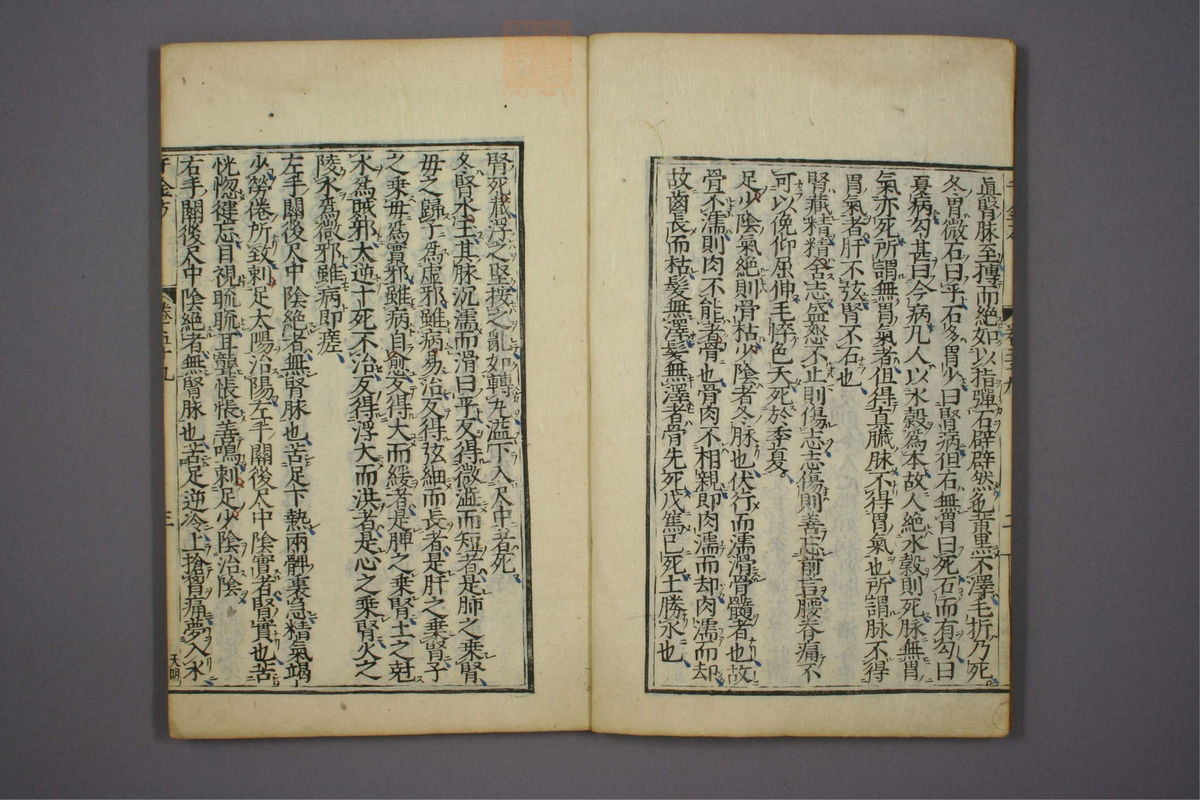 眞腎脉至摶而絶如以指彈石辟辟然色黄黒不澤毛折乃死
冬胃微石曰平石多胃少曰腎病但石無胃曰死石而有勾曰
夏病勾甚曰今病凡人以水穀爲本故人絶水穀則死脉無胃
氣亦死所謂無胃氣者但得真臓脉不得胃氣也所謂脉不得
胃氣者肝不弦腎不石也
腎藏精精舍志盛怒不止則傷志志傷則善忘前言腰脊痛不
可以俛仰屈伸毛悴色夭死於季夏
足少陰氣絶則骨枯少陰者冬脉也伏行而濡滑骨髓者也故
骨不濡則肉不能著骨也骨肉不相親即肉濡而却肉濡而却
故齒長而枯髮無澤髮無澤者骨先死戊篤己死土勝水也
腎死藏浮之堅按之亂如轉丸溢下入尺中者死
冬腎水王其脉沉濡而滑曰平反得微濇而短者是肺之乗腎
母之歸子爲虚邪雖病易治反得弦細而長者是肝之乗腎子
之乗母爲實邪雖病自愈反得大而緩者是脾之乗腎土之尅
水爲賊邪大逆十死不治反得浮大而洪者是心之乗腎火之
陵水爲微邪雖病即瘥
左手關後尺中陰絶者無腎脉也苦足下熱兩髀裏急精氣竭
少勞倦所致刺足太陽治陽左手關後尺中陰實者腎實也苦
恍惚健忘目視䀮䀮耳聾悵悵善鳴刺足少陰治陰
右手關後尺中陰絶者無腎脉也苦足逆冷上搶胷痛夢入水
千金方
卷二十九
三
天明